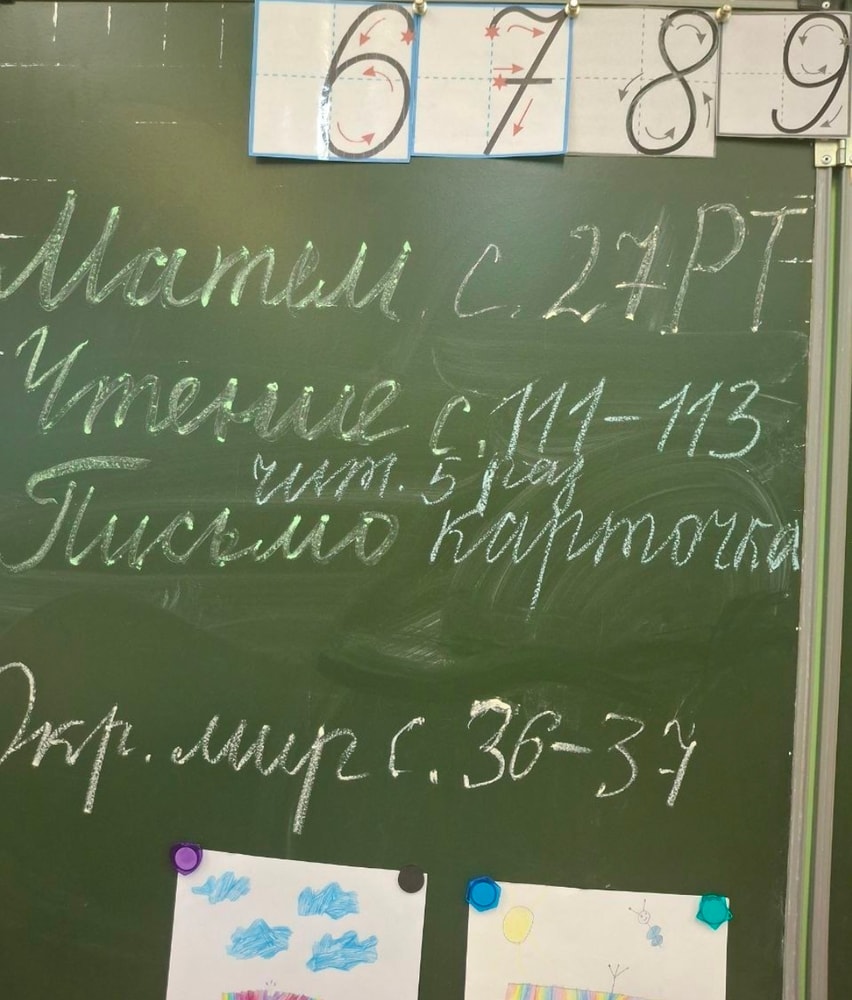 6 7 8 9
Матем. с. 27 РТ
Чтение с. 111-113
чит. 5 раз
Письмо карточка
Окр. мир с. 36-37